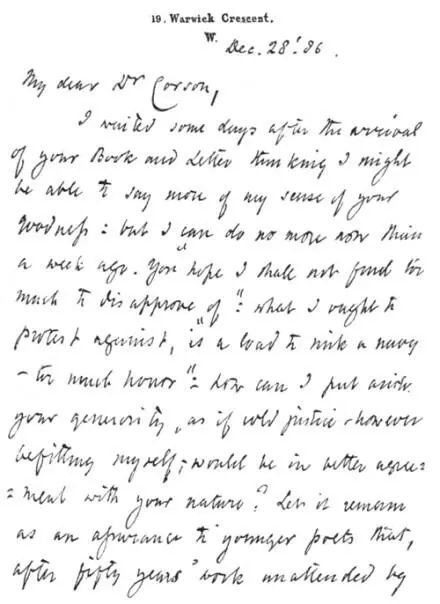 19. Warwick Crescent.
W.
Dec. 28! '86.
My dear Dr Corson,
I waited some days after the arrival
of your Book and Letter thinking I might
be able to say more of my sense of your
goodness: but I can do no more now than
a week ago. You "hope I shall not find too
much to disapprove of": what I ought to
protest against, is "a load to sink a navy
- too much honor": how can I put aside
your generosity, as if cold justice - however
befitting myself - would be in better agree-
=ment with your nature? Let it remain
as an assurance to younger poets that,
after fifty years' work unattended by